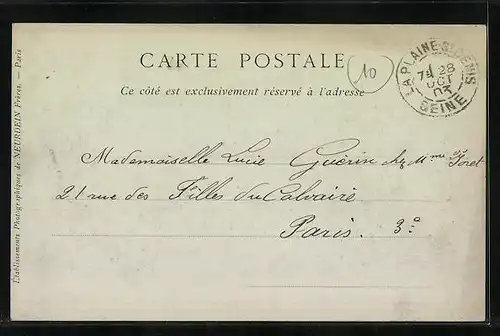 CARTE POSTALE
Ce côté est exclusivement réservé à l'adresse
10
LA PLAINE ST DENIS
7E 28
OCT
03
SEINE
Mademoiselle Lucie Guérin chez Mme Foret
21 rue des Filles du Calvaire
Paris. 3e
Établissements Photographiques de NEURDEIN Frères. — Paris